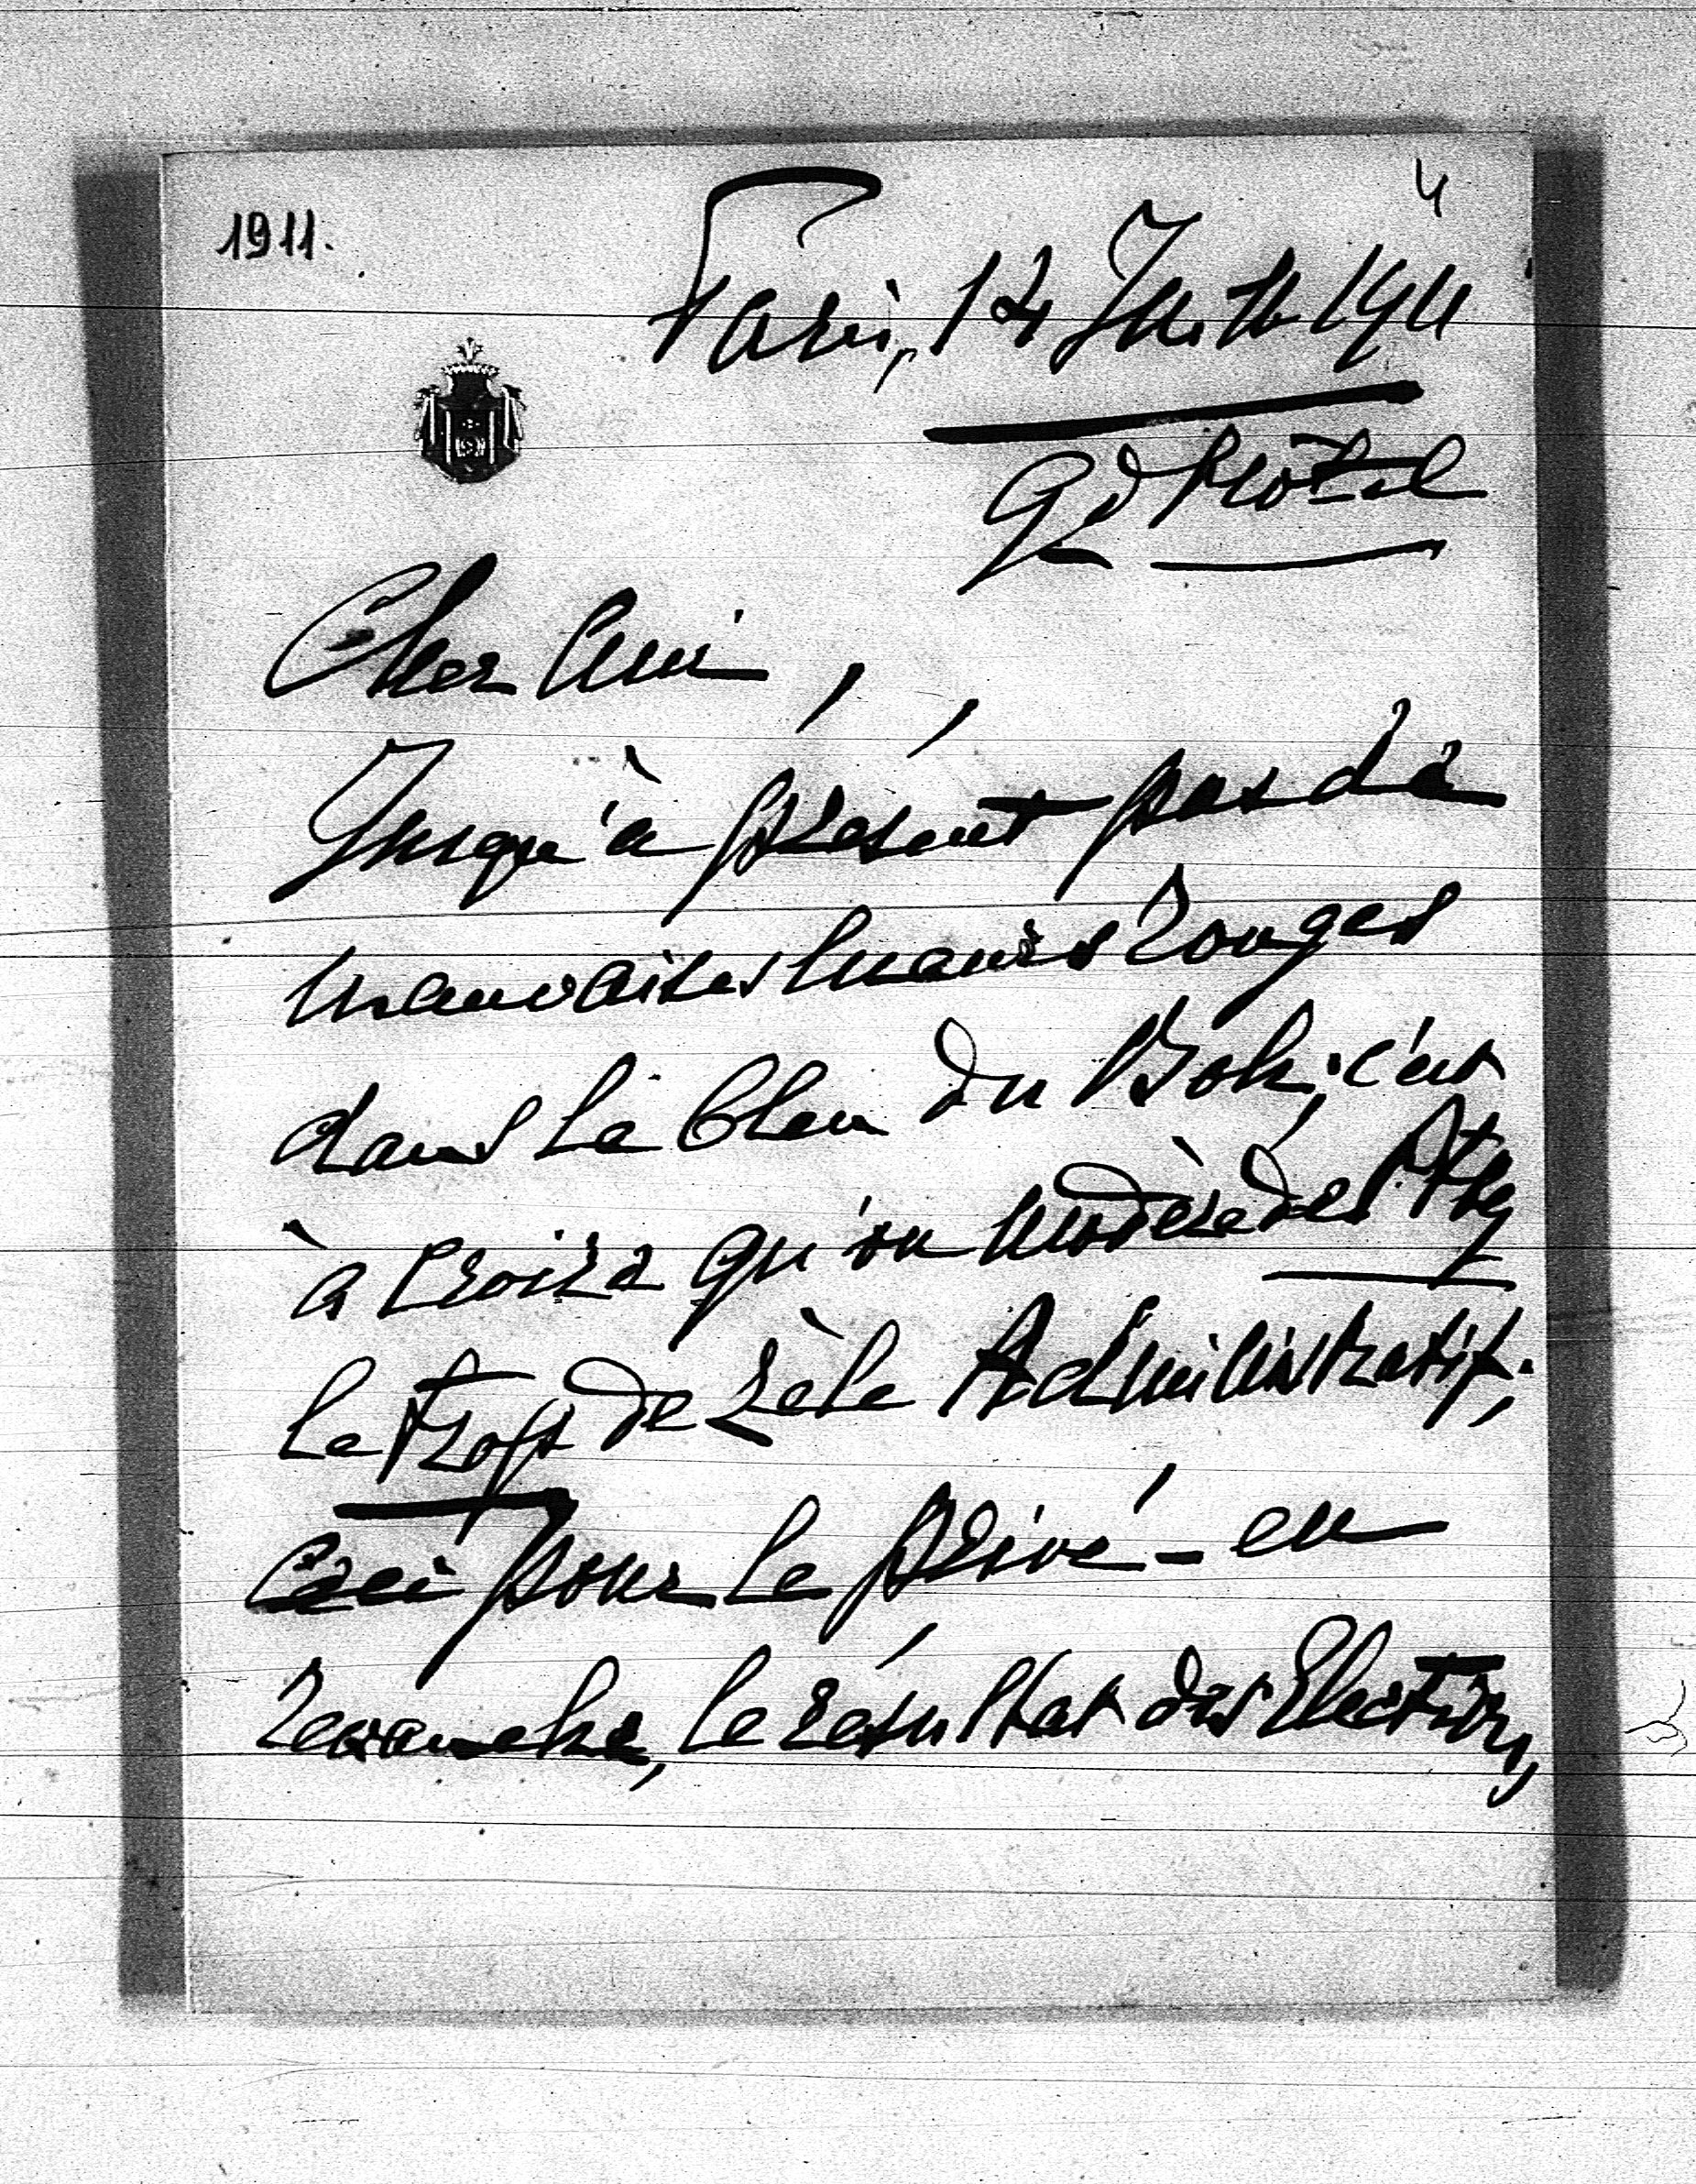 4
1911.
Paris, 14 Juillt 1911
Gd Hôtel
Cher Ami,
Jusqu'à présent pas de
mauvaises lueurs rouges
dans le bleu du Bok; c'est
à croire qu'on modère des
le trop de zèle Administratif;
Ceci pour le privé - en
revanche, le résultat des Elections,